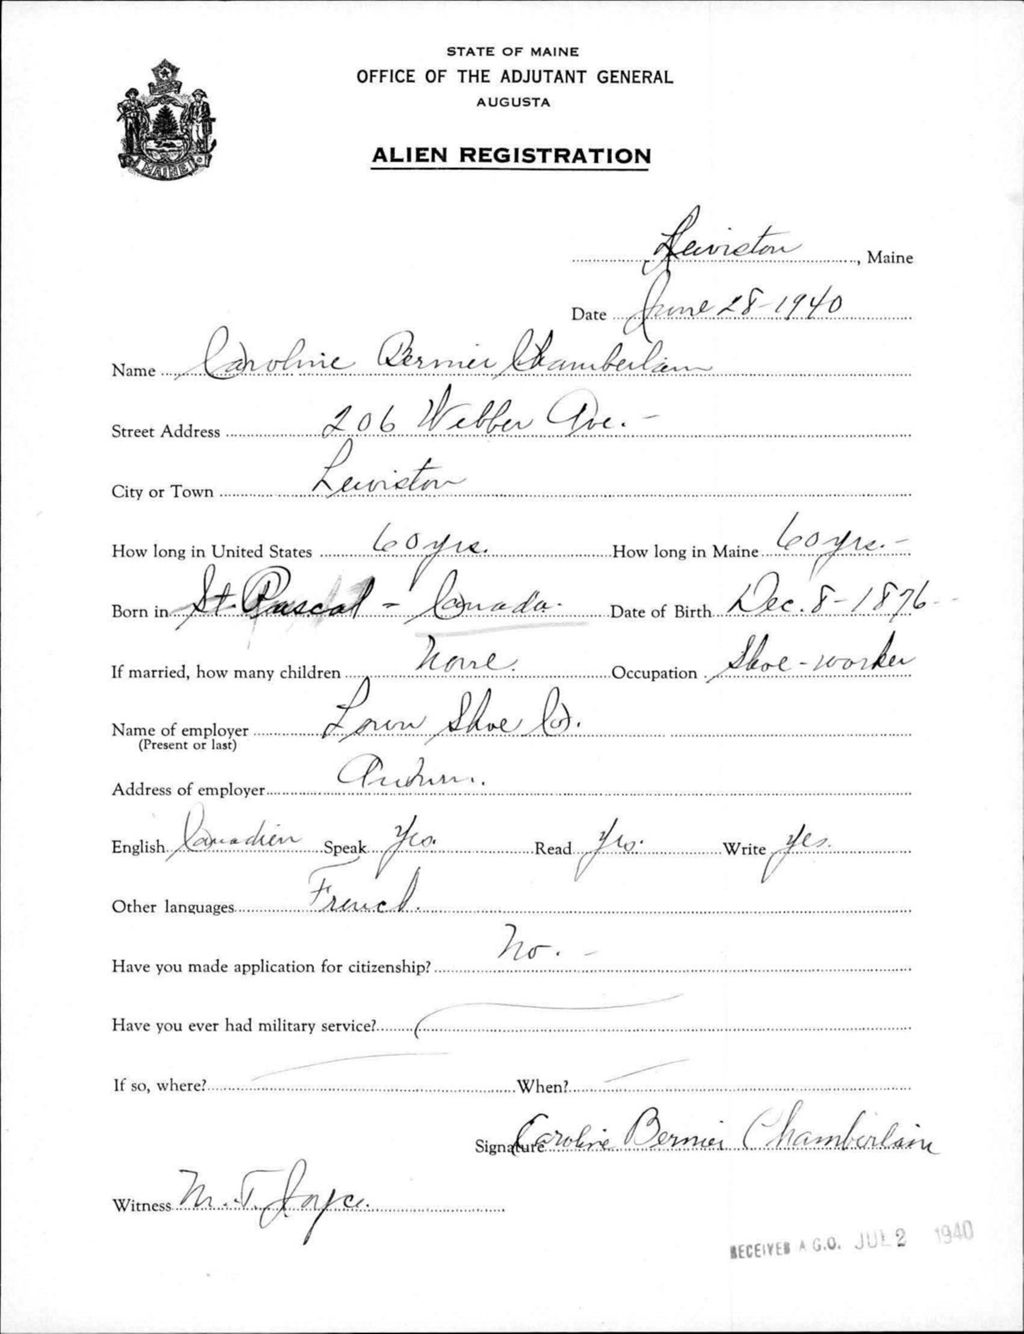 STATE OF MAINE
OFFICE OF THE ADJUTANT GENERAL
AUGUSTA
ALIEN REGISTRATION
MAINE
Lewiston, Maine
Date June 28-1940
Name Caroline Bernier Chamberlain
Street Address 206 Webber Ave. -
City or Town Lewiston
How long in United States 60 yrs. How long in Maine 60 yrs. -
Born in St. Pascal - Canada. Date of Birth Dec. 8-1876
If married, how many children None. Occupation Shoe-worker
Name of employer Lown Shoe Co.
(Present or last)
Address of employer Auburn.
English Canadien Speak Yes. Read Yes. Write Yes.
Other languages French.
Have you made application for citizenship? No. -
Have you ever had military service?
If so, where? When?
Signature Caroline Bernier Chamberlain
Witness M. T. Joyce.
RECEIVED A.G.O. JUL 2 1940